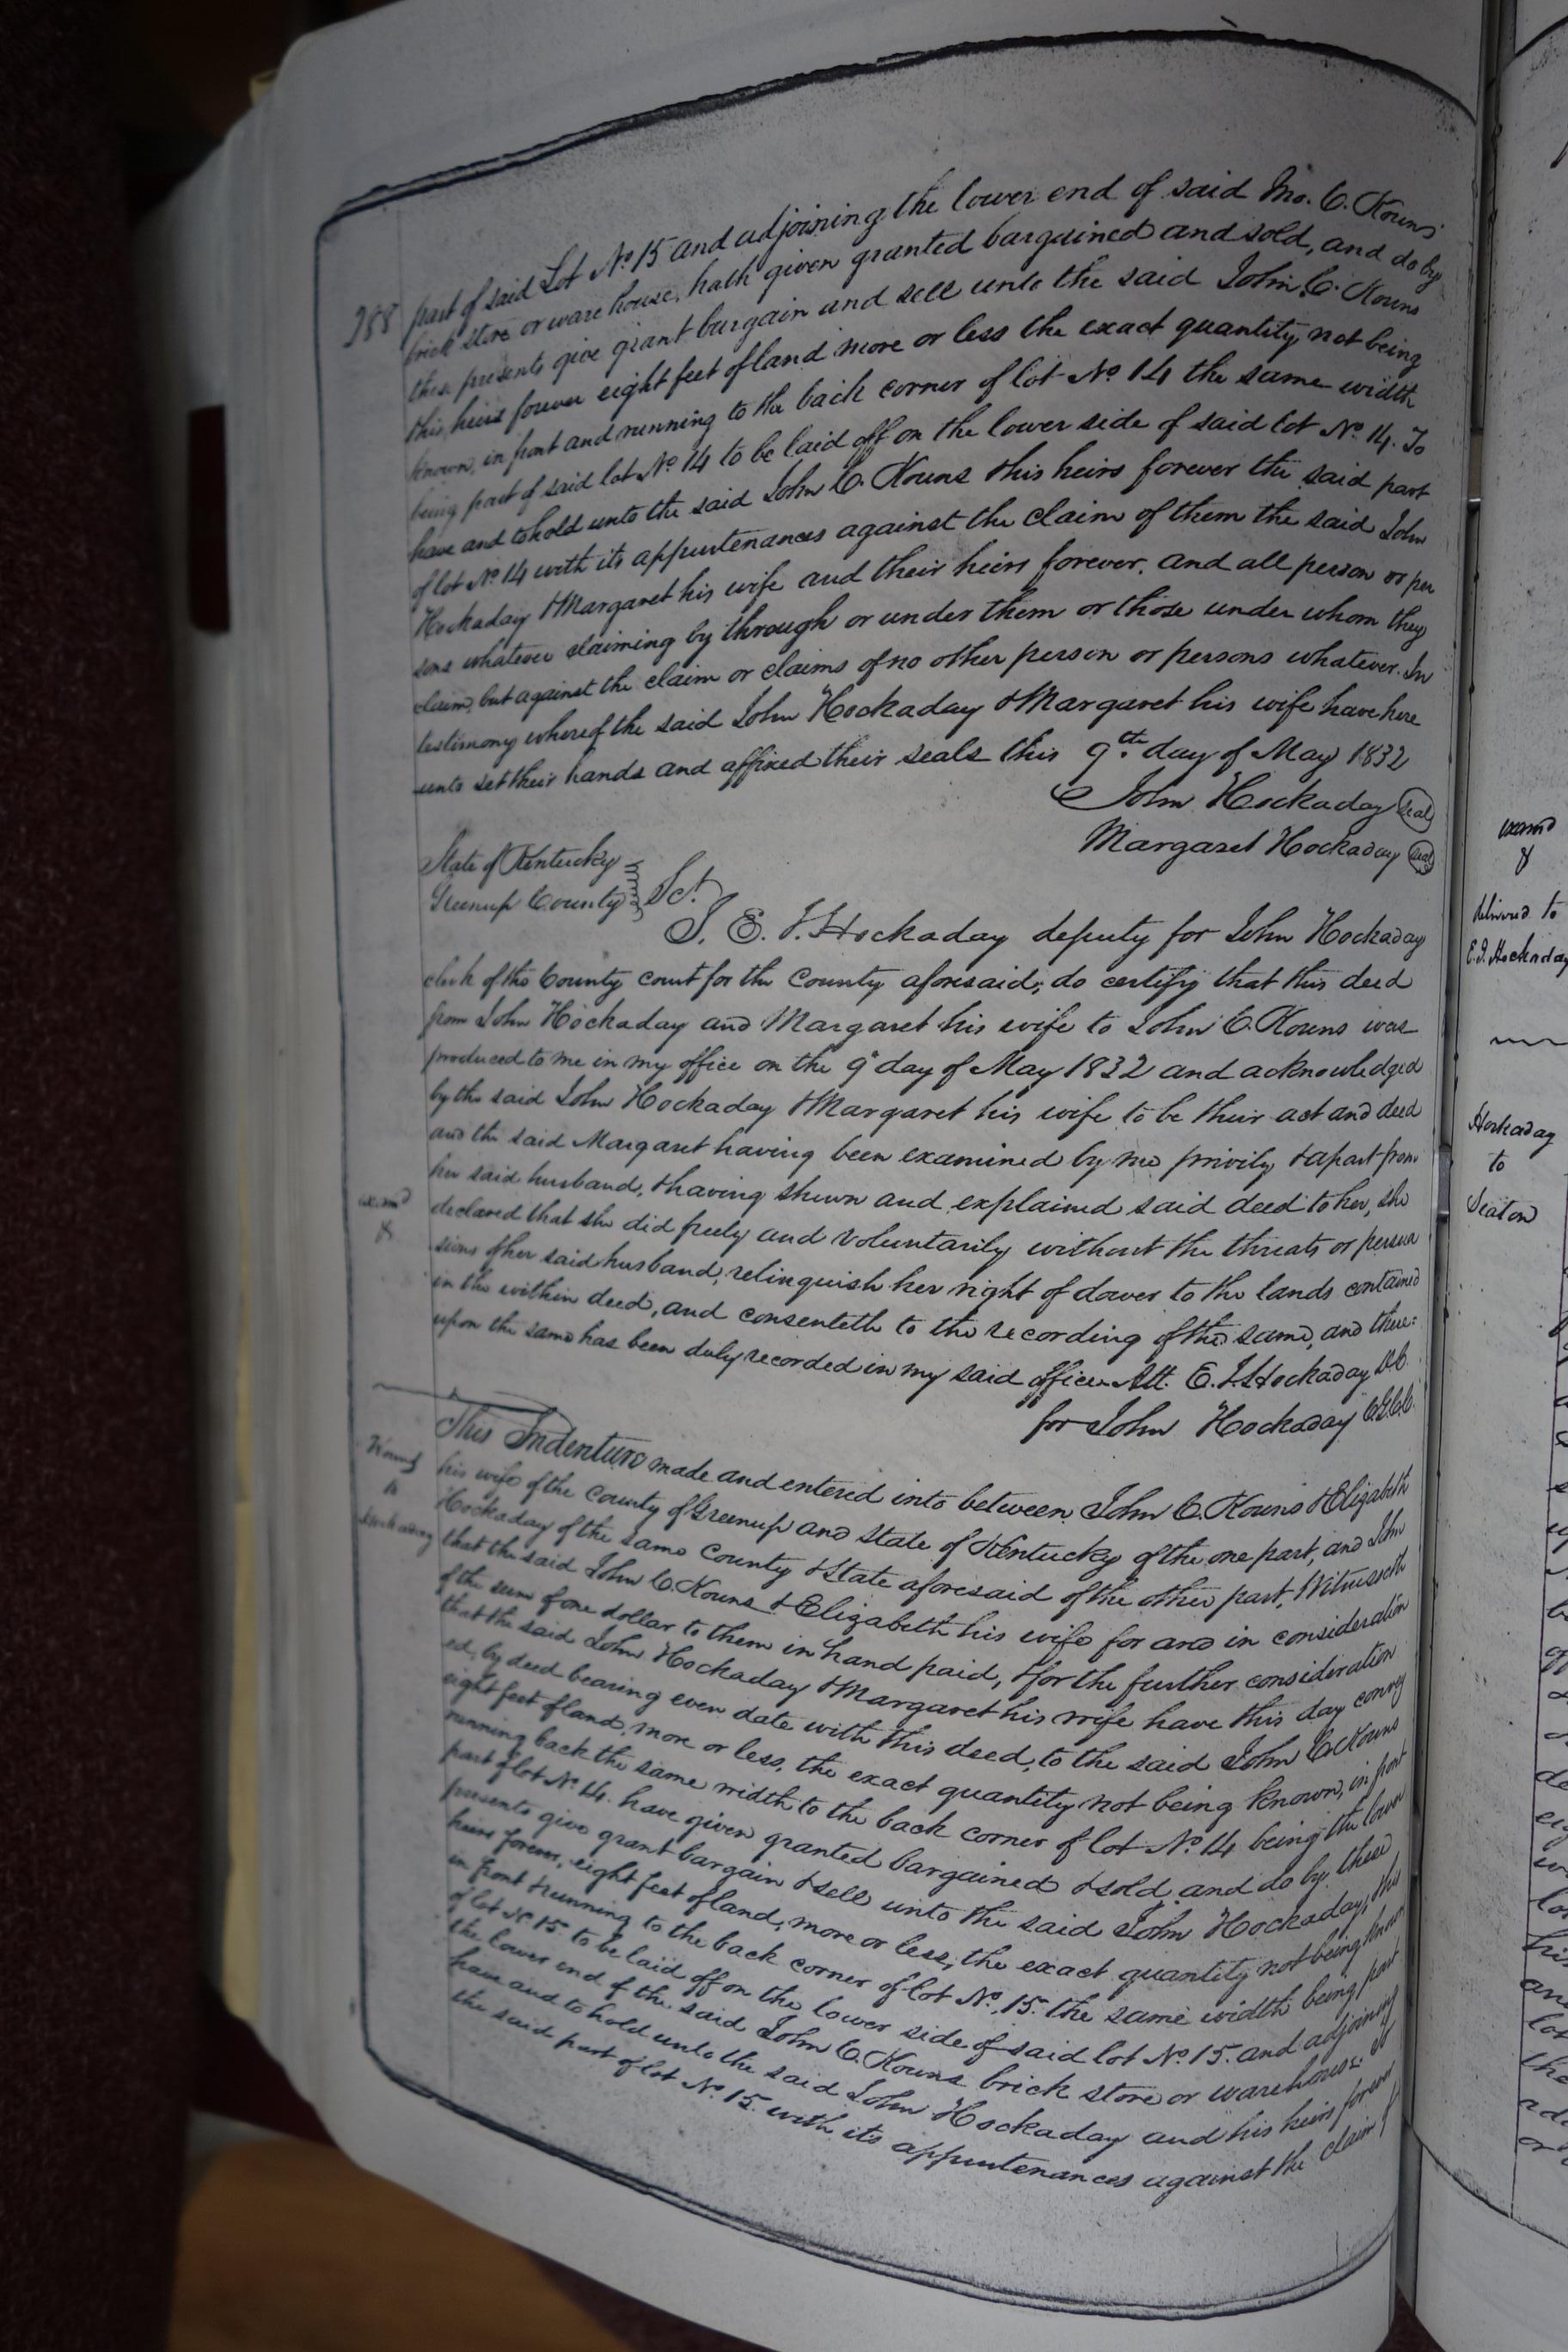 288
part of said Lot No. 15 and adjoining the lower end of said Jno. C. Kouns'
brick store or ware house, hath given granted bargained and sold, and do by
these presents give grant bargain and sell unto the said John C. Kouns
& his heirs forever eight feet of land more or less the exact quantity not being
known, in front and running to the back corner of lot No. 14 the same width
being part of said lot No. 14 to be laid off on the lower side of said lot No. 14. To
have and to hold unto the said John C. Kouns & his heirs forever the said part
of lot No. 14 with its appurtenances against the claim of them the said John
Hockaday & Margaret his wife and their heirs forever. and all person or per
sons whatever claiming by through or under them or those under whom they
claim, but against the claim or claims of no other person or persons whatever. In
testimony whereof the said John Hockaday & Margaret his wife have here
unto set their hands and affixed their seals this 9th day of May 1832
John Hockaday Seal
Margaret Hockaday Seal
State of Kentucky
Greenup County Sct.
I, E. J. Hockaday deputy for John Hockaday
clerk of the County court for the County aforesaid; do certify that this deed
from John Hockaday and Margaret his wife to John C. Kouns was
produced to me in my office on the 9th day of May 1832 and acknowledged
by the said John Hockaday & Margaret his wife to be their act and deed
and the said Margaret having been examined by me privily & apart from
her said husband, & having shewn and explained said deed to her, she
declared that she did freely and voluntarily without the threats or persua
sions of her said husband, relinquish her right of dower to the lands contained
in the within deed, and consenteth to the recording of the same, and there:
upon the same has been duly recorded in my said office. Att. E. J. Hockaday D.C.
for John Hockaday C.G.C.C.
examd
&
Kouns
to
Hockaday
This Indenture made and entered into between John C. Kouns & Elizabeth
his wife of the County of Greenup and State of Kentucky of the one part, and John
Hockaday of the same County & State aforesaid of the other part, Witnesseth
that the said John C. Kouns & Elizabeth his wife for and in consideration
of the sum of one dollar to them in hand paid, & for the further consideration
that the said John Hockaday & Margaret his wife have this day convey
ed, by deed bearing even date with this deed, to the said John C. Kouns
eight feet of land, more or less, the exact quantity not being known, in front
running back the same width to the back corner of lot No. 14 being the lower
part of lot No. 14. have given granted bargained & sold and do by these
presents give grant bargain & sell unto the said John Hockaday, & his
heirs forever, eight feet of land, more or less, the exact quantity not being known
in front & running to the back corner of lot No. 15. the same width being part
of lot No. 15 to be laid off on the lower side of said lot No. 15. and adjoining
the lower end of the said John C. Kouns brick store or warehouse. To
have and to hold unto the said John Hockaday and his heirs forever
the said part of lot No. 15. with its appurtenances against the claim of
examd
&
delivered to
E. J. Hockaday
Hockaday
to
Seaton